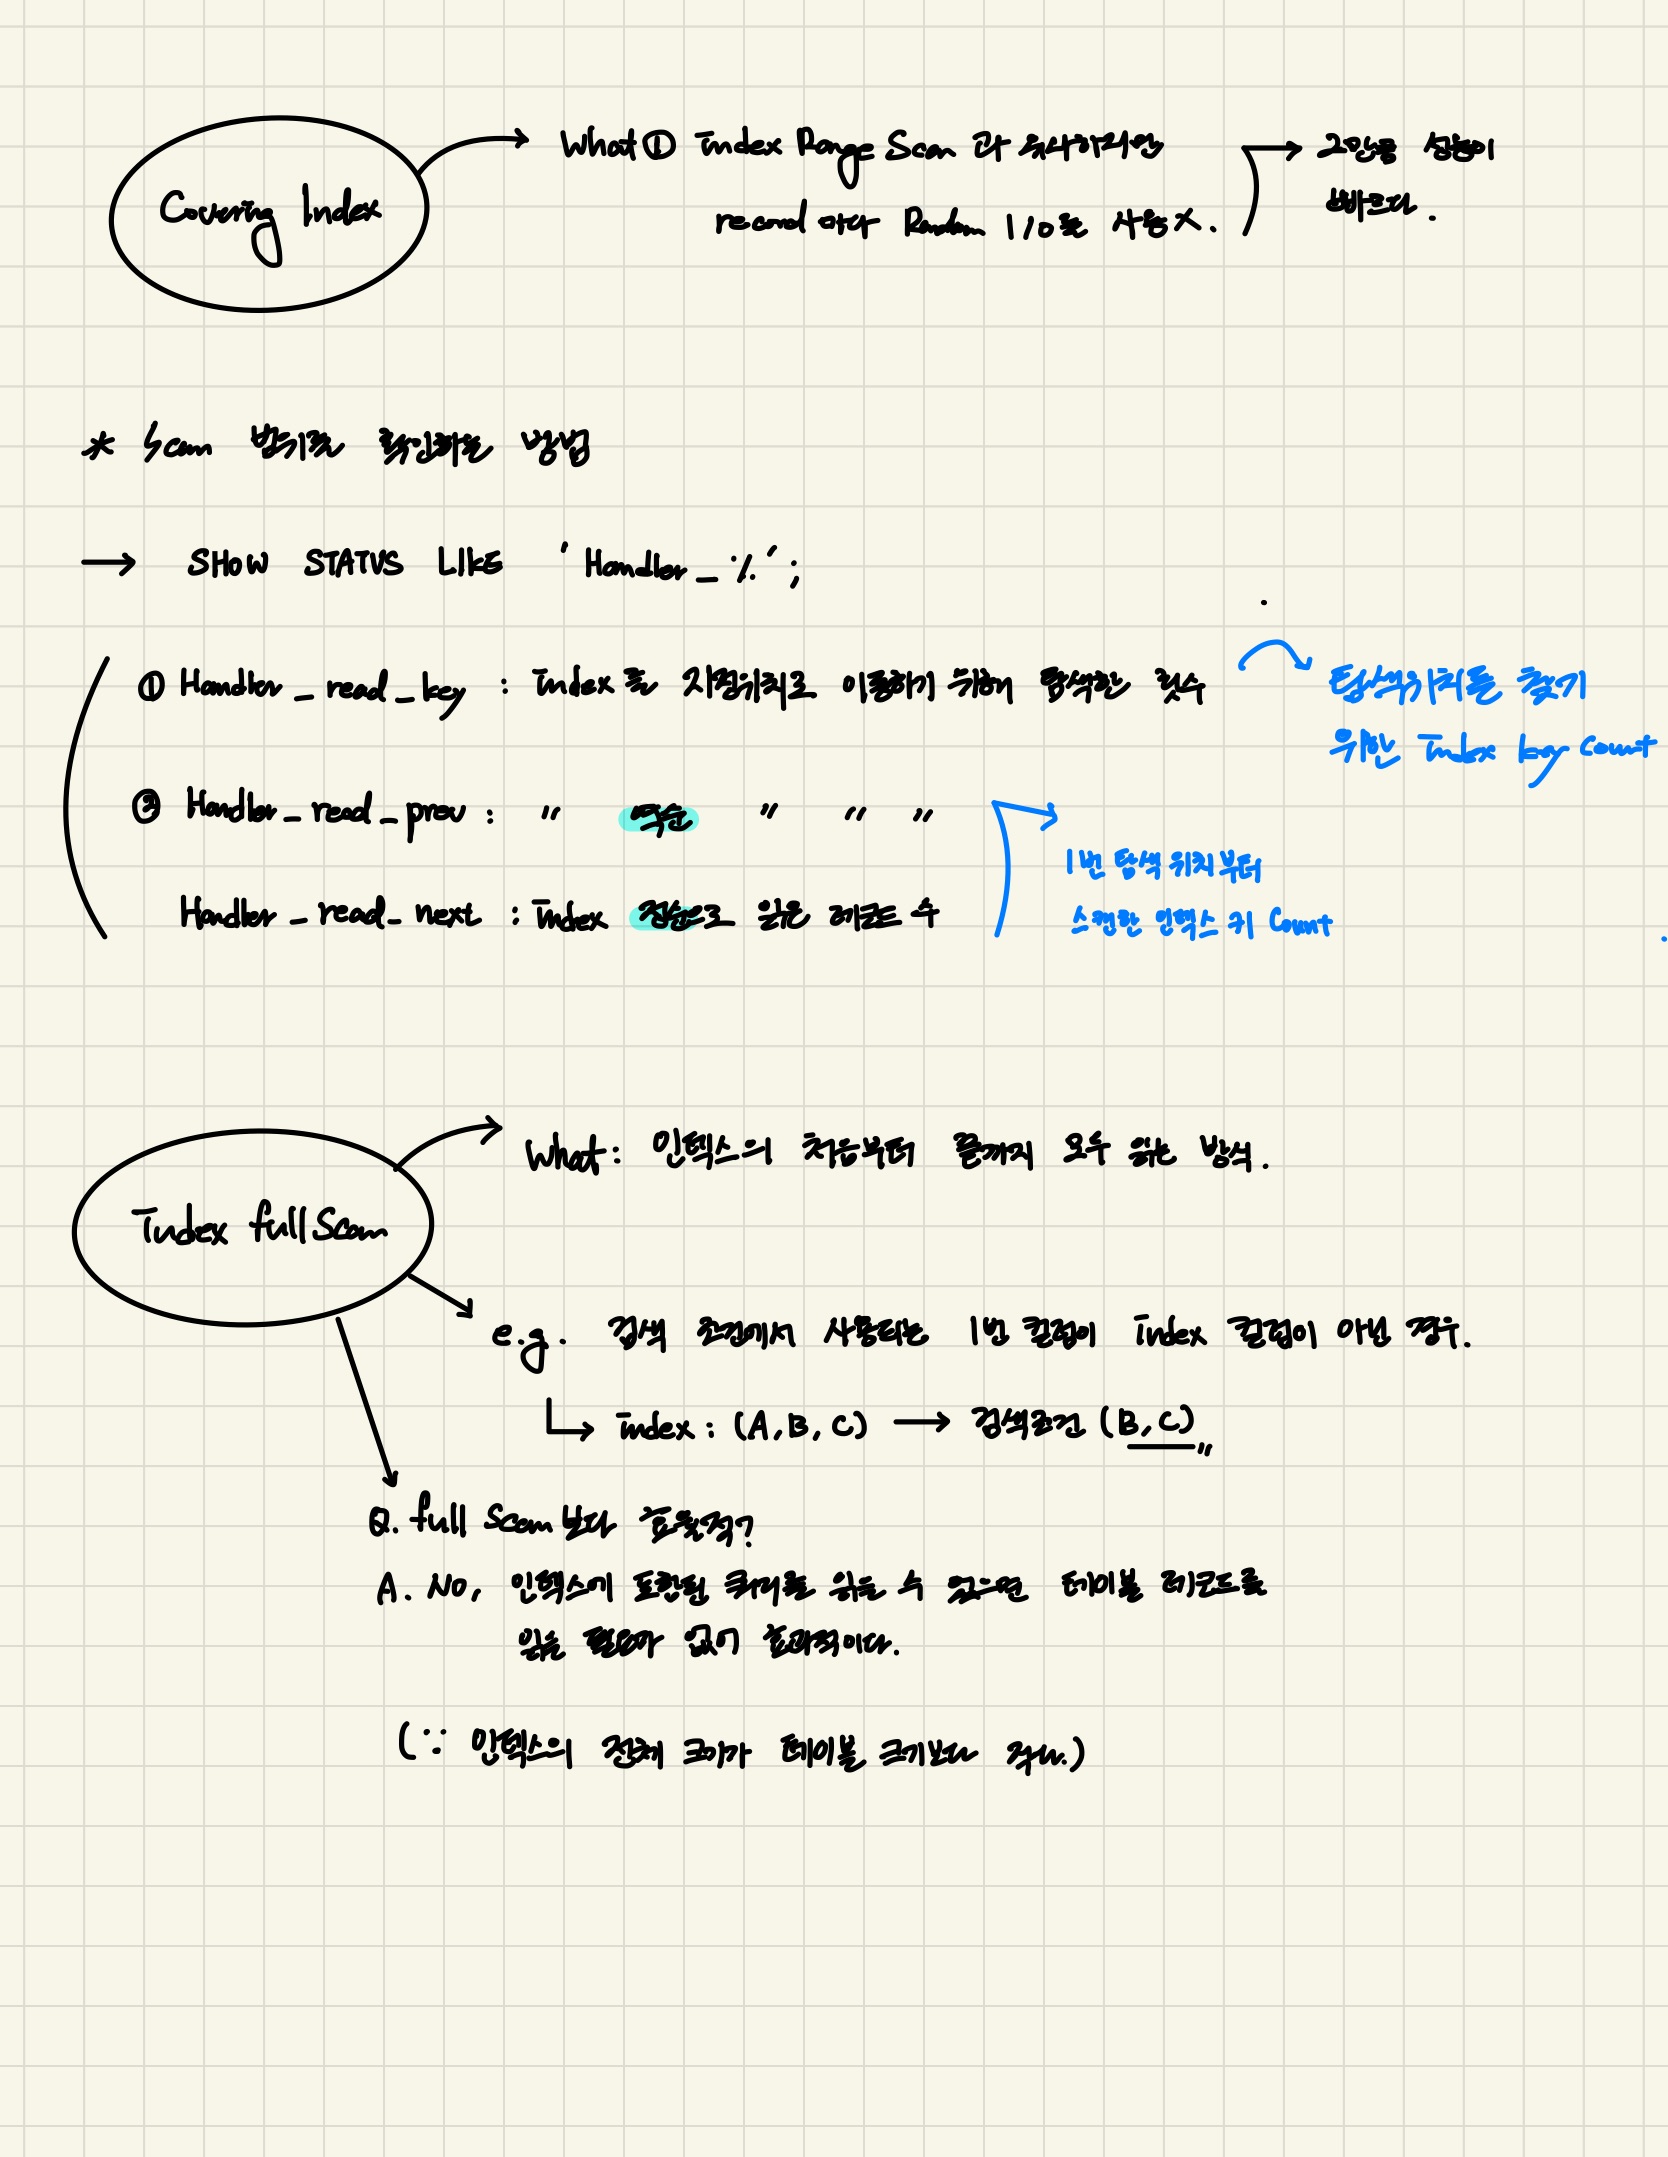 Covering Index
What① Index Range Scan 과 유사하지만
record 마다 Random I/O를 사용 X.
그만큼 성능이
빠르다.
* Scan 범위를 확인하는 방법
→ SHOW STATUS LIKE 'Handler_%';
① Handler_read_key : Index를 지정위치로 이동하기 위해 탐색한 횟수
탐색위치를 찾기
위한 Index key Count
② Handler_read_prev : 〃 역순 〃 〃 〃
Handler_read_next : Index 정순으로 읽은 레코드 수
1번 탐색 위치부터
스캔한 인덱스 키 Count
Index full Scan
What : 인덱스의 처음부터 끝까지 모두 읽는 방식.
e.g. 검색 조건에서 사용되는 1번 컬럼이 Index 컬럼이 아닌 경우.
↳ index : (A, B, C) → 검색조건 (B, C)〃
Q. full Scan 보다 효율적?
A. NO, 인덱스에 포함된 쿼리를 읽을 수 있으면 테이블 레코드를
읽을 필요가 없어 효과적이다.
(∵ 인덱스의 전체 크기가 테이블 크기보다 작다.)